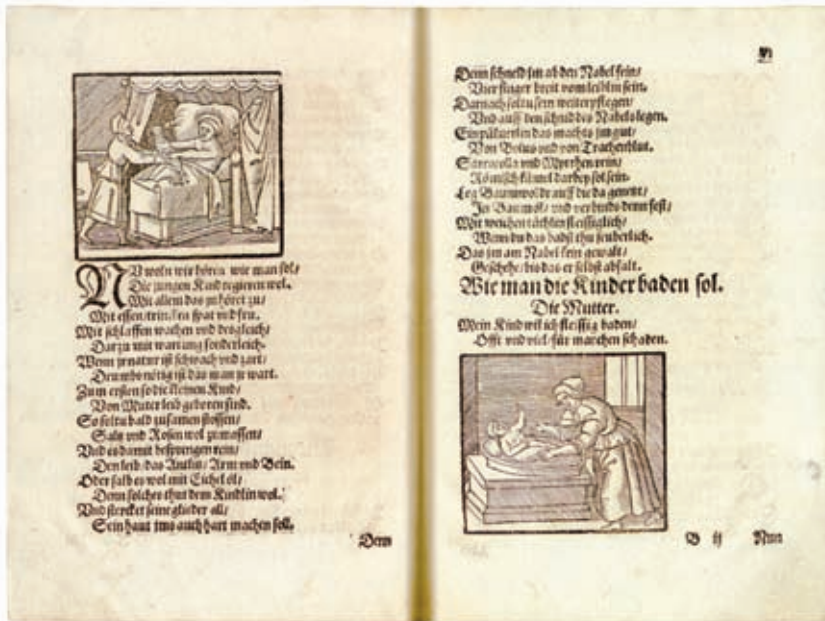 NU woln wir hören wie man sol/
Die jungen Kind regieren wol.
Mit allem das zu höret zu/
Mit essen/trincken spat und fru.
Mit schlaffen wachen vnd desgleich/
Darzu mit wartung sonderleich.
Wenn jr natur ist schwach vnd zart/
Drumb nötig ist das man jr wart.
Zum ersten so die kleinen Kind/
Von Muter leib geboren sind.
So soltu bald zusamen stossen/
Saltz vnd Rosen wol zu massen/
Vnd es damit besprengen rein/
Den leib/das Antlitz/Arm vnd Bein.
Oder salb es wol mit Eichel öl/
Denn solches thut dem Kindlin wol.
Vnd stercket seine glieder all/
Sein haut jms auch hart machen soll.
Denn
Denn schneid jm ab den Nabel fein/
Vier finger breit vom leiblin sein.
Darnach soltu jern weiter pflegen/
Vnd auff den schnid des Nabels legen.
Ein püluerlin das machs jm gut/
Von Bolus vnd von Trachenblut.
Sarcocolla vnd Myrrhen rein/
Römisch kümel darbey sol sein.
Leg Baumwol drauff die da genetzt/
Mit weichen tüchlen fleissiglich/
Wenn du das badst thu seuberlich.
Das jm am Nabel kein gewalt/
Geschehe/bis das er selbst abfalt.
Wie man die Kinder baden sol.
Die Mutter.
Mein Kind wil ich fleissig baden/
Offt vnd viel/für manchen schaden.
B ij Nun